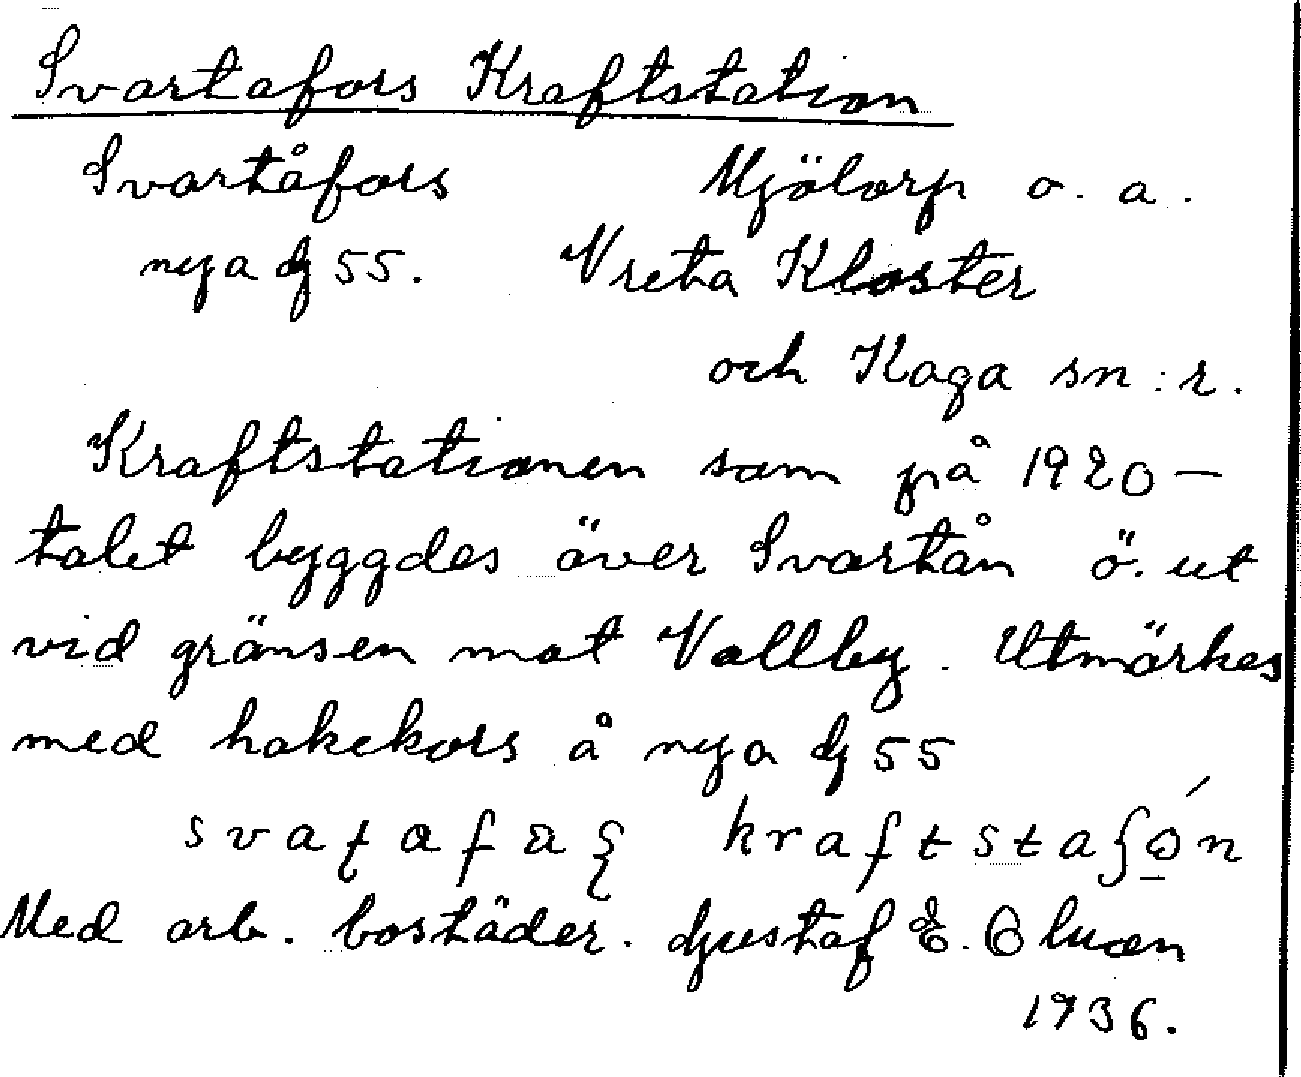 Svartafors Kraftstation
Svartåfors Mjölorp o. a.
nya G 55. Vreta Kloster
och Kaga sn:r.
Kraftstationen som på 1920-
talet byggdes över Svartån ö. ut
vid gränsen mot Vallby. Utmärkes
med hakekors å nya G 55
Med arb. bostäder. Gustaf E.
1936.